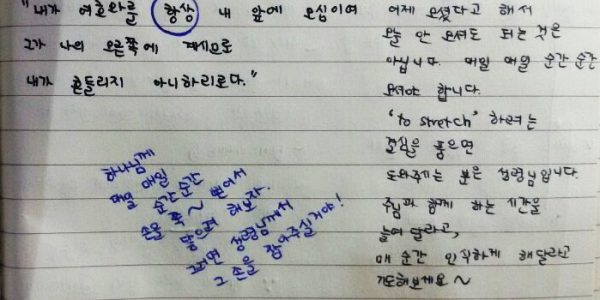 "내가 여호와를 항상 내 앞에 모심이여
그가 나의 오른쪽에 계시므로
내가 흔들리지 아니하리로다."
하나님께
매일 매일 순간순간
손을 쭉~ 뻗어서
닿으려 해보자.
그러면 성령님께서
그 손을 잡아주실거야!
어제 모셨다고 해서
오늘 안 모셔도 되는 것은
아닙니다. 매일 매일 순간 순간
모셔야 합니다.
'to stretch' 하려는
결심을 품으면
도와주시는 분은 성령님입니다.
주님과 함께 하는 시간을
늘려 달라고,
매 순간 인식하게 해달라고
기도해보세요~